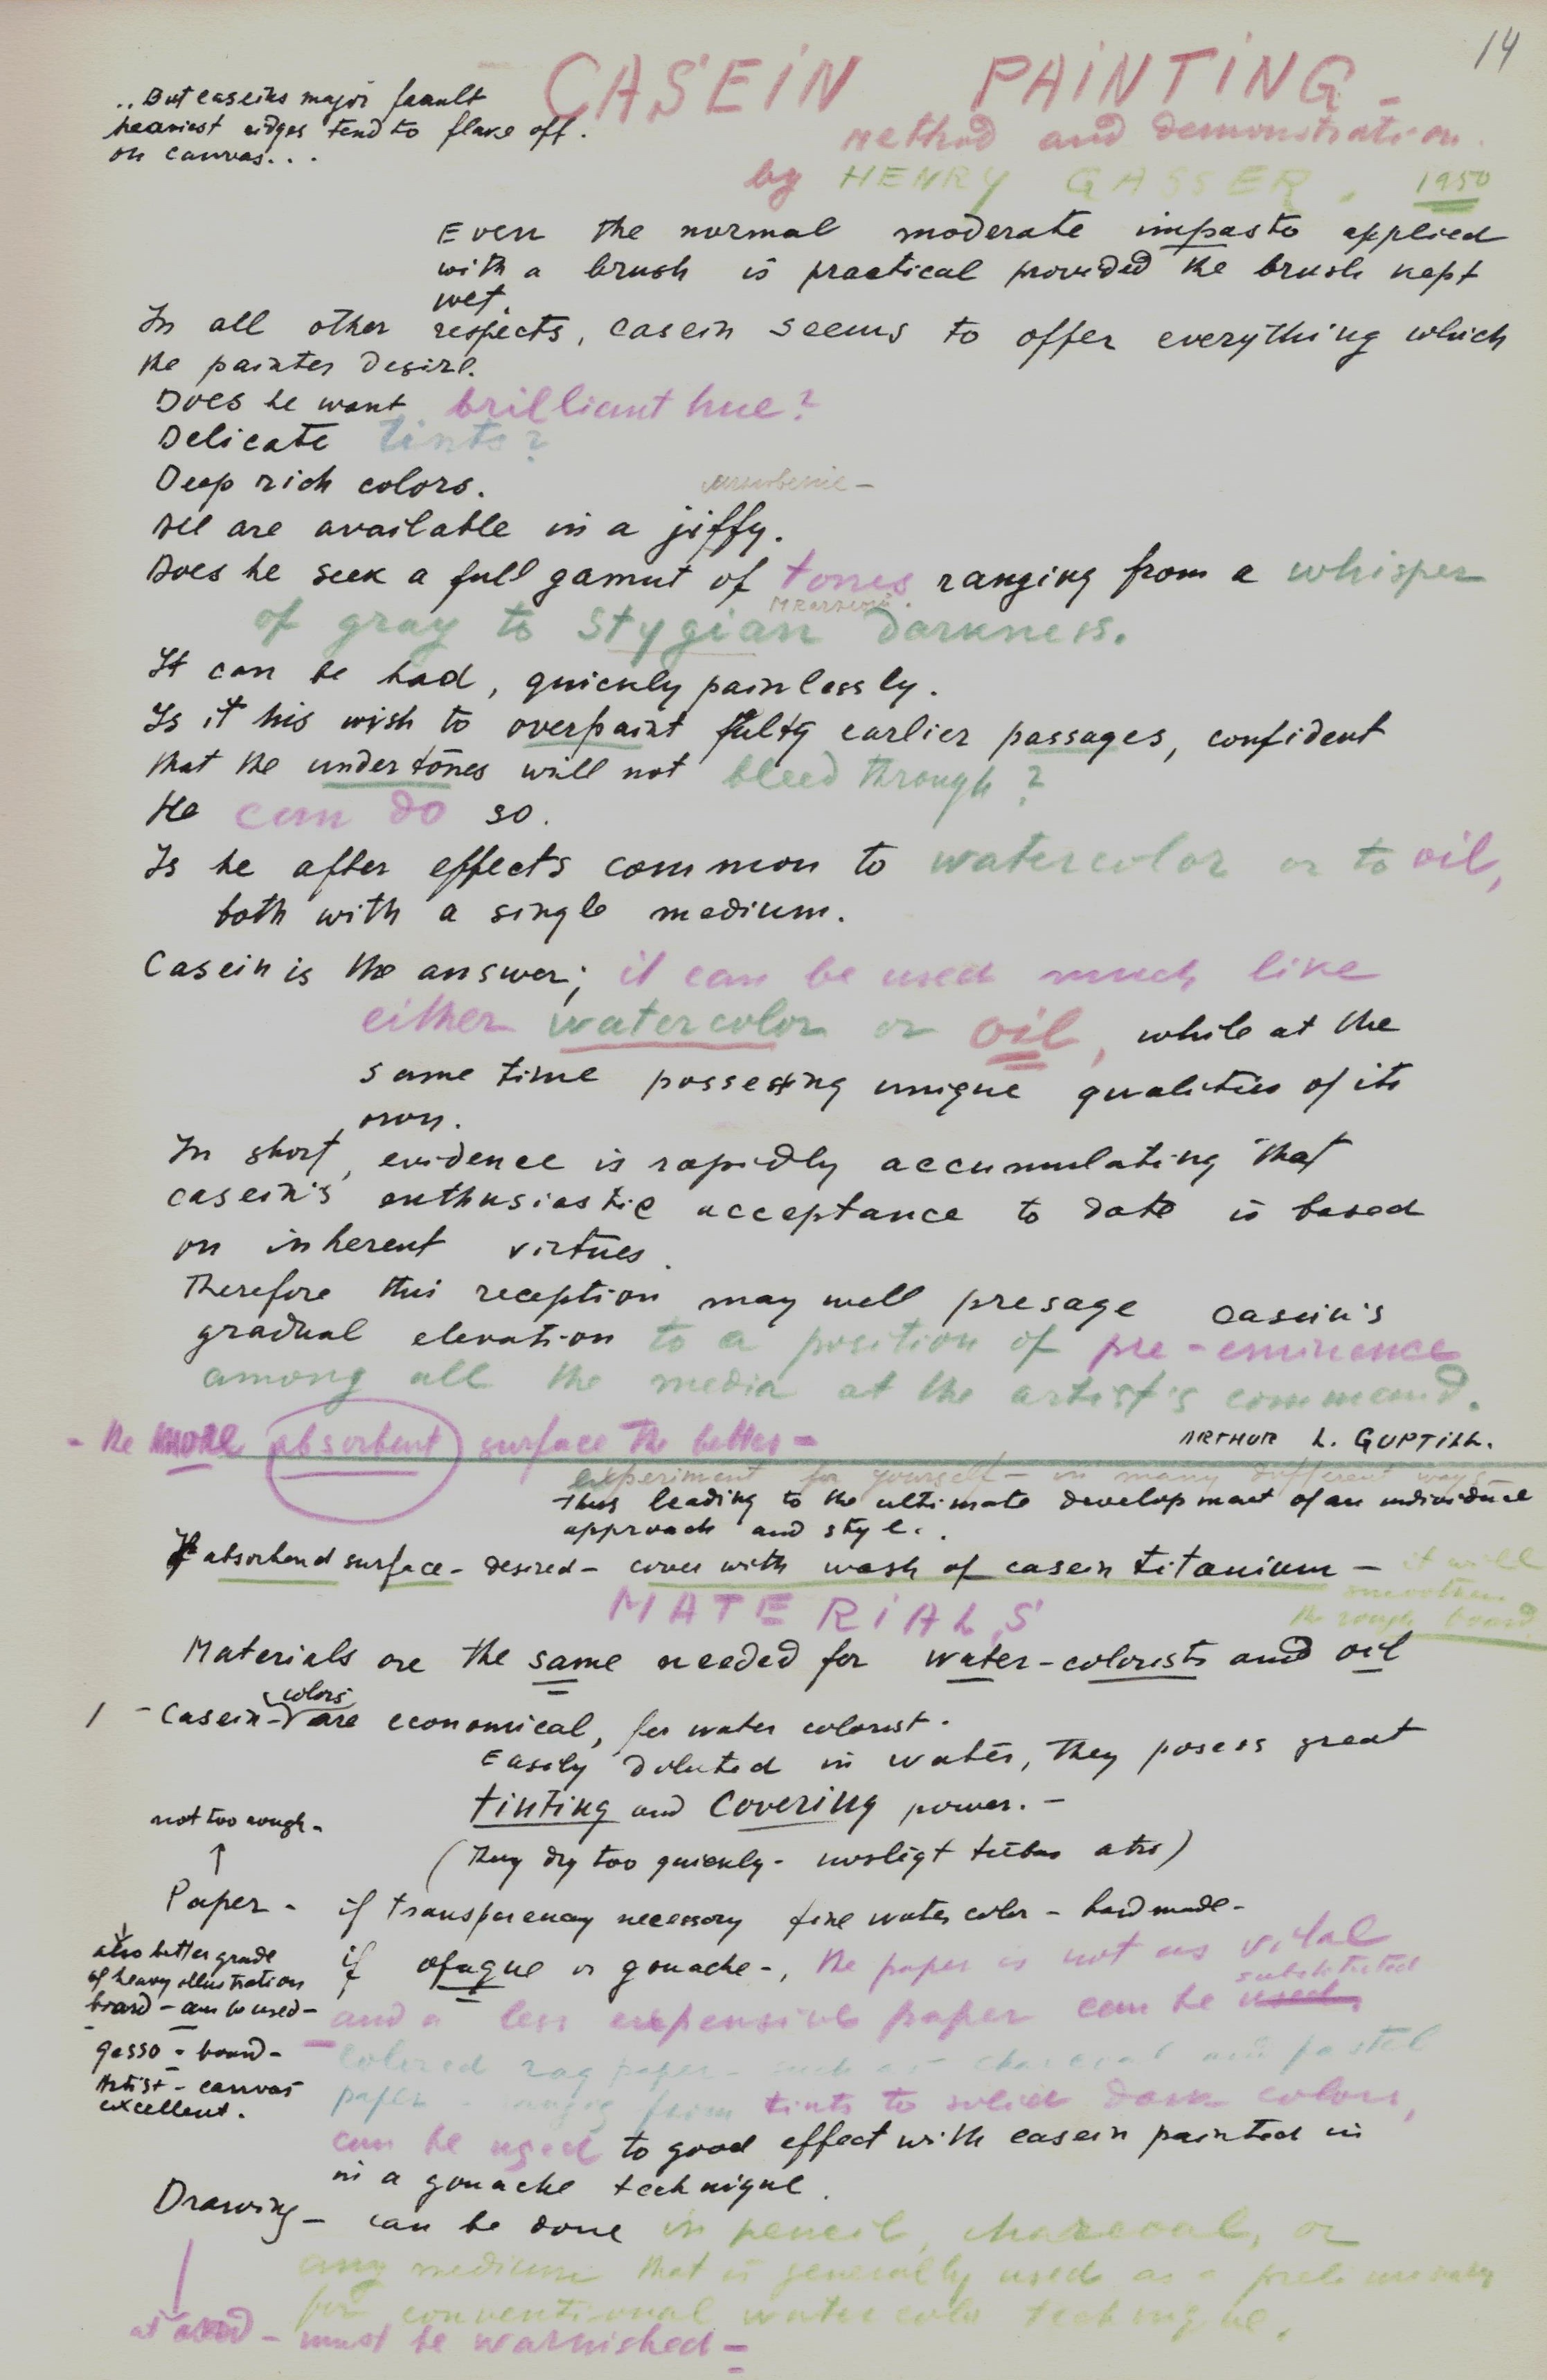 14
CASEIN PAINTING -
Method and demonstration.
by HENRY GASSER. 1950
.. But caseins major fault
heaviest ridges tend to flake off.
on canvas...
Even the normal moderate impasto applied
with a brush is practical provided the brush kept
wet.
In all other respects, casein seems to offer everything which
the painter desire.
Does he want brilliant hue?
Delicate tints?
Deep rich colors.
All are available in a jiffy.
Does he seek a full gamut of tones ranging from a whisper
of gray to Stygian darkness.
It can be had, quickly painlessly.
Is it his wish to overpaint fulty earlier passages, confident
that the undertones will not bleed through?
He can do so.
Is he after effects common to watercolor or to oil,
both with a single medium.
Casein is the answer; it can be used much like
either watercolor or oil, while at the
same time possesing unique qualities of its
own.
In short, evidence is rapidly accumulating that
casein's enthusiastic acceptance to date is based
on inherent virtues.
Therefore this reception may well presage casein's
gradual elevation to a position of pre-eminence
among all the media at the artist's command.
ARTHUR L. GUPTILL.
- the more absorbent surface the better -
experiment for yourself - in many different ways -
Thus leading to the ultimate development of an individual
approach and style.
If absorbend surface - desired - cover with wash of casein titanium - it will
smoothen
the rough board
MATERIALS
Materials are the same needed for water-colorists and oil
1 - Casein - colors are economical, for water colorist.
Easily diluted in water, they posess great
tinting and covering power. -
(They dry too quickly - tubes)
not too rough -
Paper - if transparency necessary fine water color - handmade -
also better grade
of heavy illustration
board - can be used -
gesso - board -
Artist - canvas
excellent.
if opaque or gouache -, the paper is not as vital
and a less expensive paper can be used substituted
Colored rag paper - such as charcoal and pastel
paper - ranging from tints to solid dark colors,
can be used to good effect with casein painted in
in a gouache technique.
Drawing - can be done in pencil, charcoal, or
any medium that is generally used as a preliminary
for conventional watercolor technique.
at end - must be warnished -